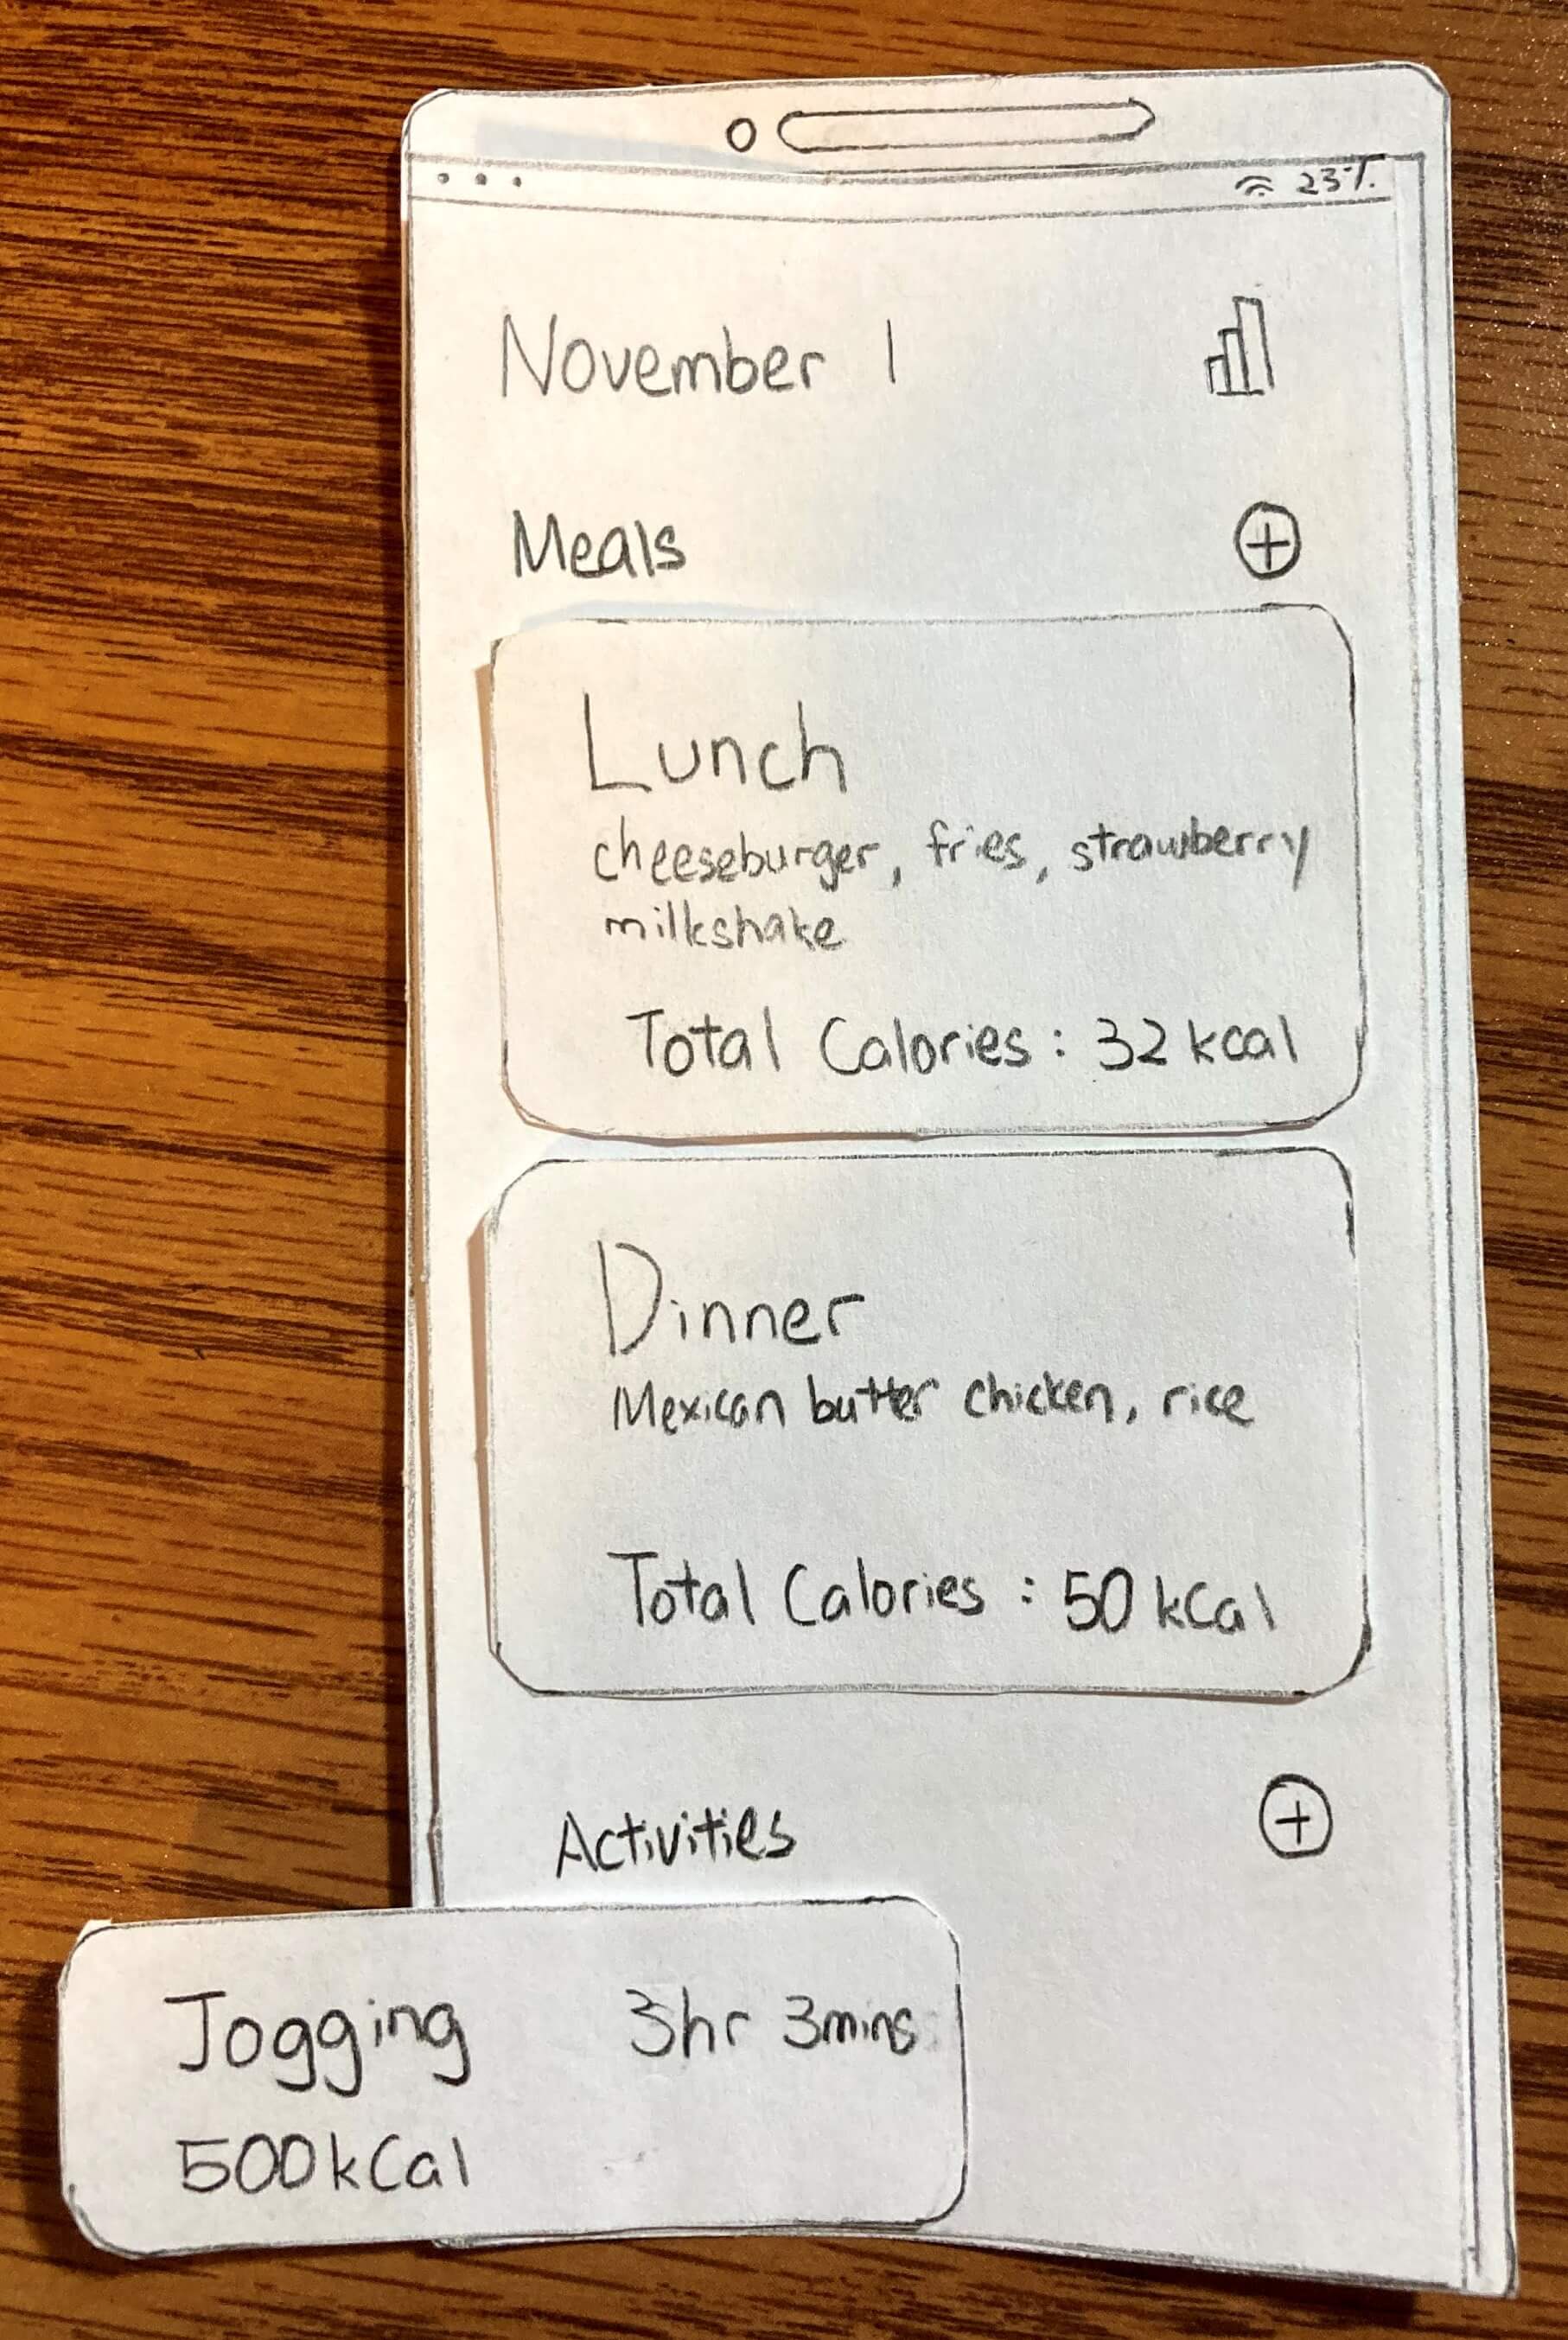 23%
November 1
Meals
Lunch
cheeseburger, fries, strawberry
milkshake
Total Calories: 32 kcal
Dinner
Mexican butter chicken, rice
Total Calories: 50 kCal
Activities
Jogging 3hr 3mins
500 kCal